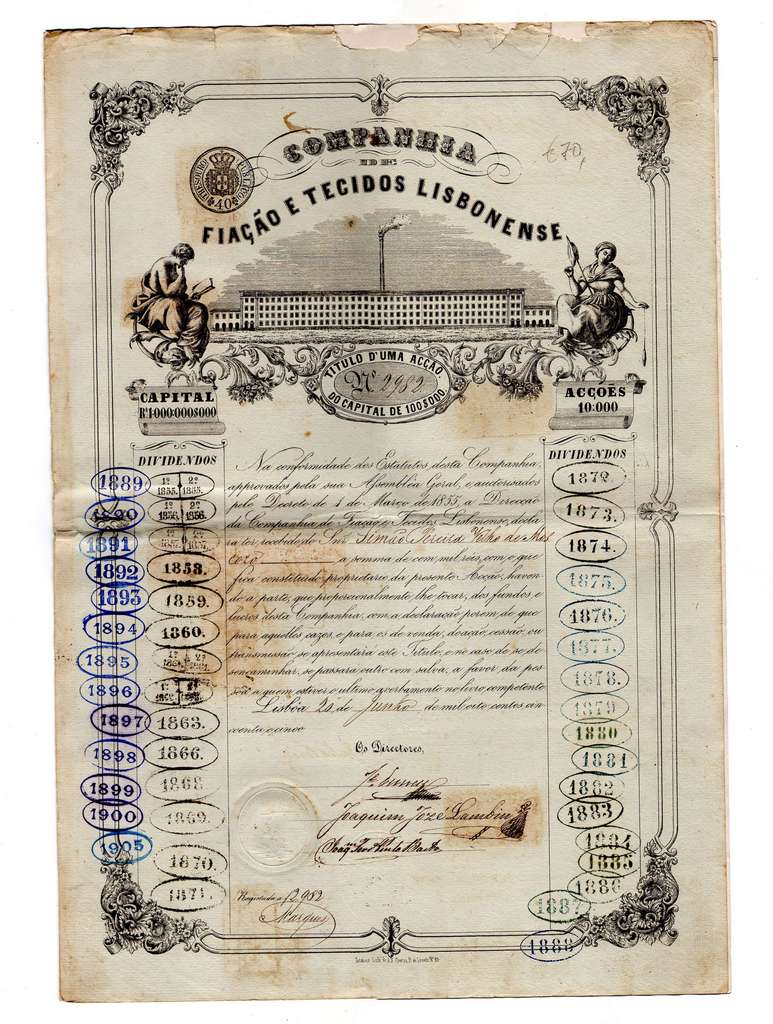 COMPANHIA
DE
€70,
40
FIAÇÃO E TECIDOS LISBONENSE
TITULO D'UMA ACÇÃO
Nº 2982
DO CAPITAL DE 100$000
CAPITAL
Rˢ 1·000·000$000
ACÇÕES
10:000
DIVIDENDOS
1889
1º 1855. 2º 1855.
1890
1º 1856. 2º 1856.
1891
1892
1858.
1893
1859.
1894
1860.
1895
1896
1897
1863.
1898
1866.
1899
1868
1900
1869.
1905
1870.
1871.
Na conformidade dos Estatutos desta Companhia,
approvados pela sua Assembléa Geral, e authorisados
pelo Decreto de 1 de Março de 1855, a Direcção
da Companhia de Fiação e Tecidos Lisbonense, decla
ra ter recebido do Snr. Simão Pereira Velho de Mos
coso a somma de cem mil reis, com o que
fica constituido proprietario da presente Acção, haven
do a parte, que proporcionalmente lhe tocar, dos fundos e
lucros desta Companhia, com a declaração porém, de que
para aquelles cazos, e para os de venda, doação, cessão, ou
transmissão, se apresentará este Titulo, e no caso de se de
sencaminhar, se passará outro com salva, a favor da pes
soa a quem estiver o ultimo averbamento no livro competente
Lisboa 20 de Junho de mil oito centos cin
coenta e cinco
Os Directores,
Joaquim José
Registada a f 2982
Marques
DIVIDENDOS
1872.
1873.
1874.
1875.
1876.
1877.
1878.
1879
1880
1881
1882
1883
1884
1885
1886
1887
1888